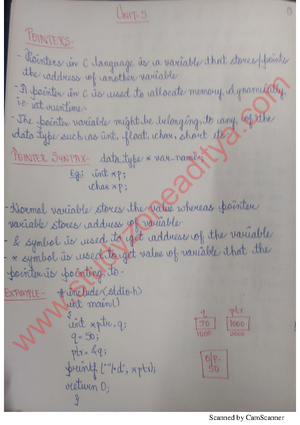 Unit-5
①
POINTERS:-
- Pointers in C language is a variable that stores/points
the address of another variable
- A pointer in C is used to allocate memory dynamically
i.e. at runtime.
- The pointer variable might be belonging to any of the
data type such as int, float, char, short etc.
POINTER SYNTAX:- data_type * var_name;
Eg:- int *p;
char *p;
- Normal variable stores the value whereas pointer
variable stores address of variable.
- & symbol is used to get address of the variable
- * symbol is used to get value of variable that the
pointer is pointing to.
EXAMPLE:- #include<stdio.h>
int main()
{
int *ptr, q;
q = 50;
ptr = &q;
printf("%d", *ptr);
return 0;
}
q ptr
50 1000
1000 2000
O/P:-
50
www.studyzoneaditya.com
Scanned by CamScanner